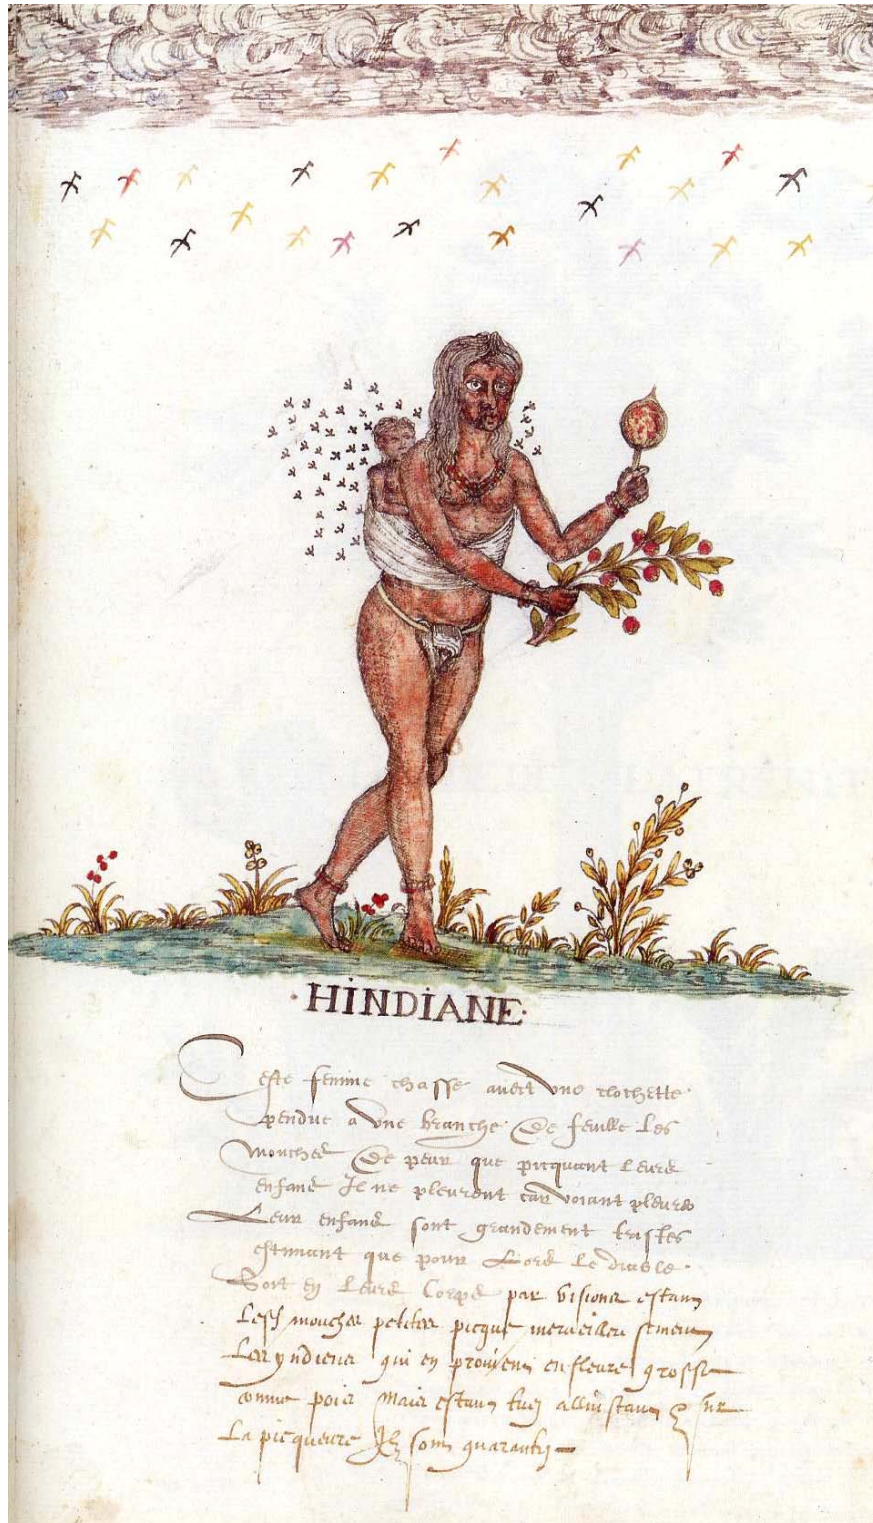 ·HINDIANE·
Ceste femme chasse avecq une clochette
pendue a une branche De feuille les
mouches De peur que picquant leurs
enfans Il ne pleurent car voiant pleurer
Leur enfans sont grandement tristes
estimant que pour Lors le diable
Soit en leurs Corps par visions estans
Lesd mouches petites picque merveilleusement
Les yndiens qui en provient enfleure grosse
comme pois mais estans tuez a linstant sur
La picqueure Ilz sont guarantis